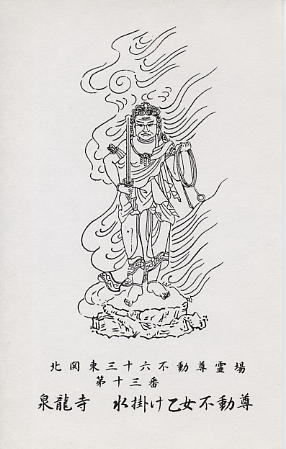 北関東三十六不動尊霊場
第十三番
泉龍寺 水掛け乙女不動尊